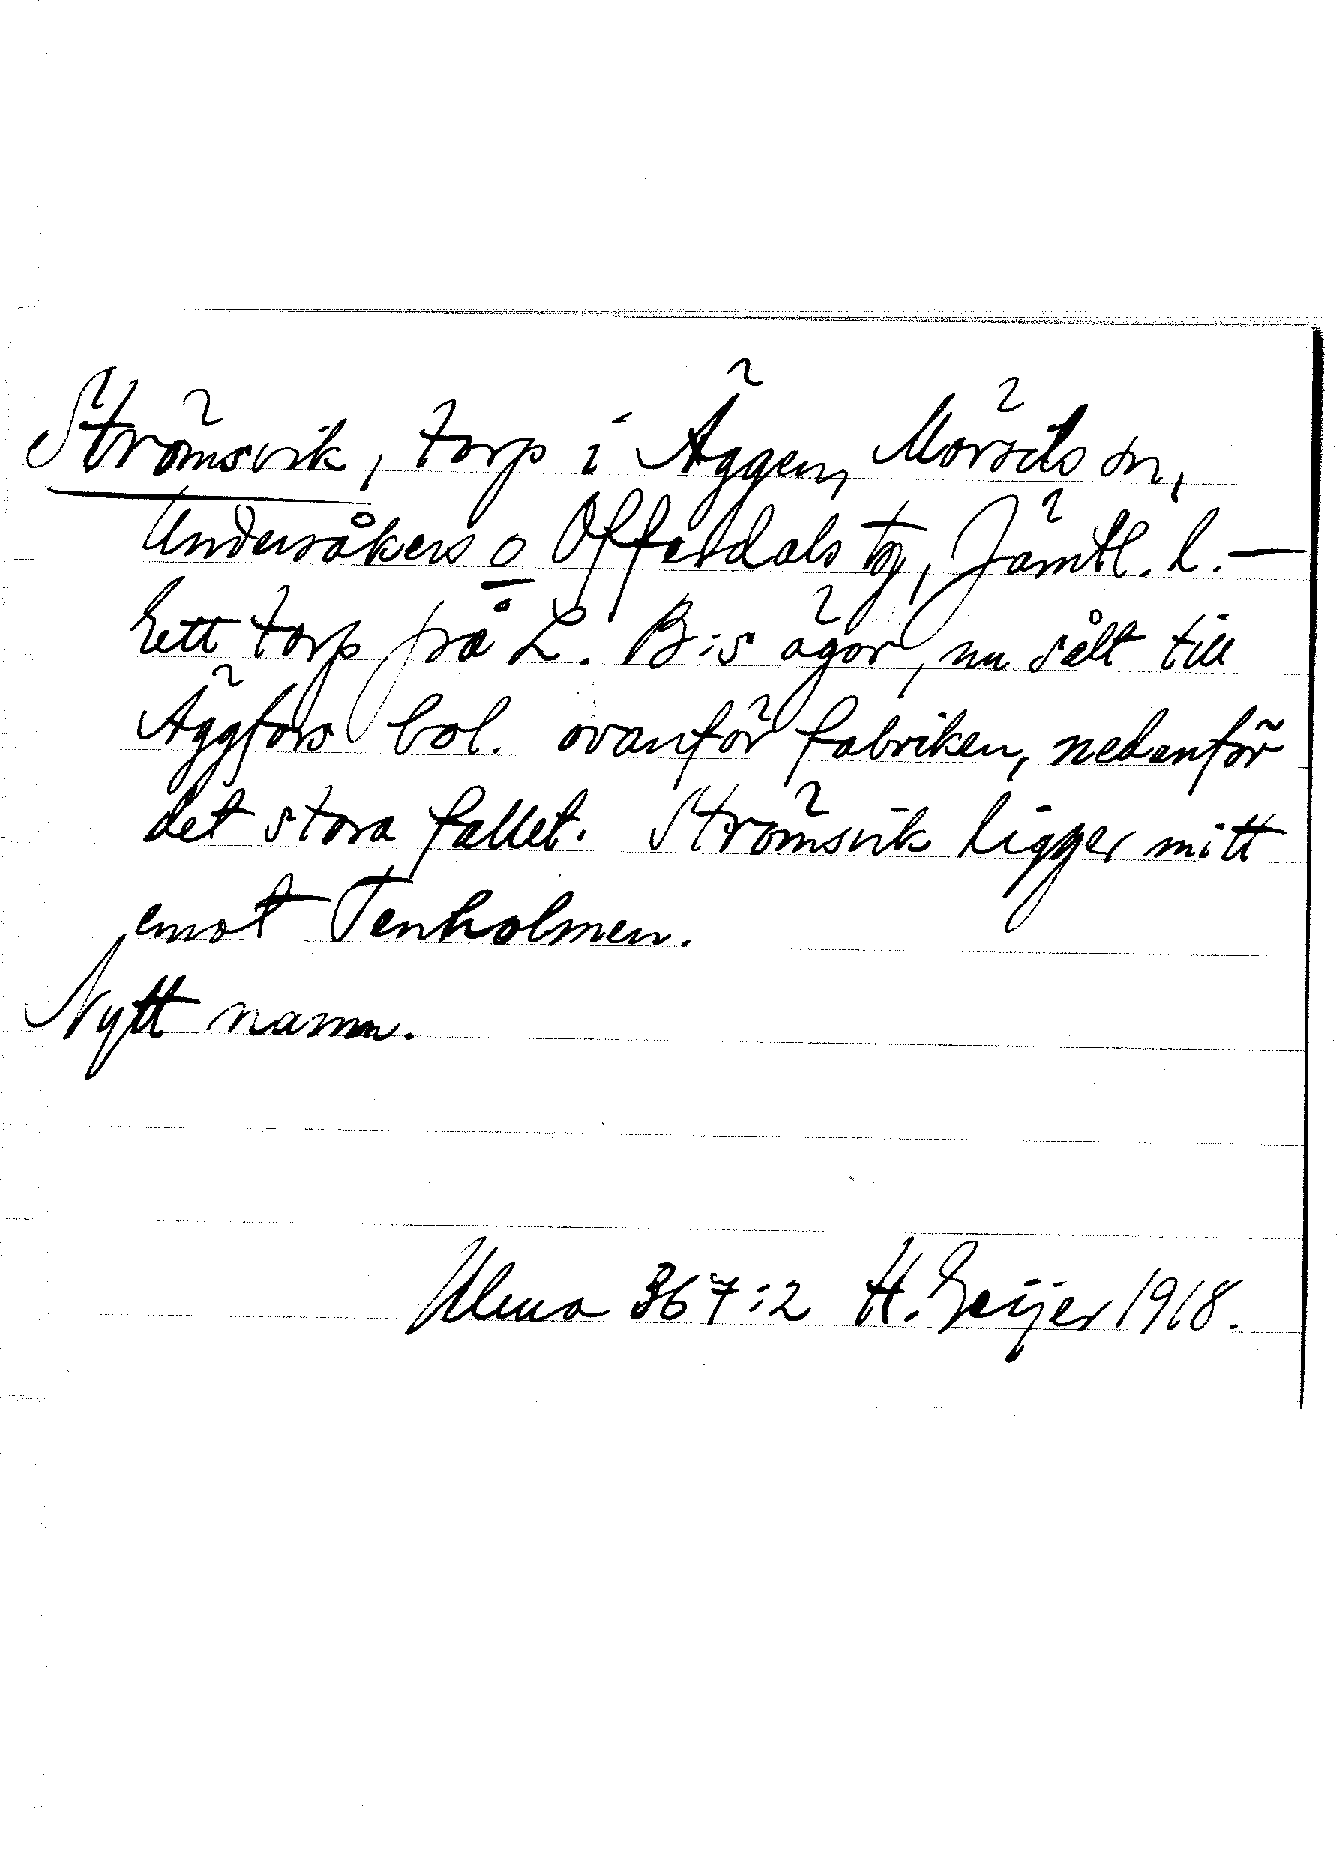 Strömsvik, torp i Äggen, Mörsils sn,
Undersåkers o Offerdals tg, Jämtl. l. —
Ett torp på L. B:s ägor, nu sålt till
Äggfors bol. ovanför fabriken, nedanför
det stora fallet. Strömsvik ligger mitt
emot Tenholmen.
Nytt namn.
Ulma 367:2 H. Geijer 1918.